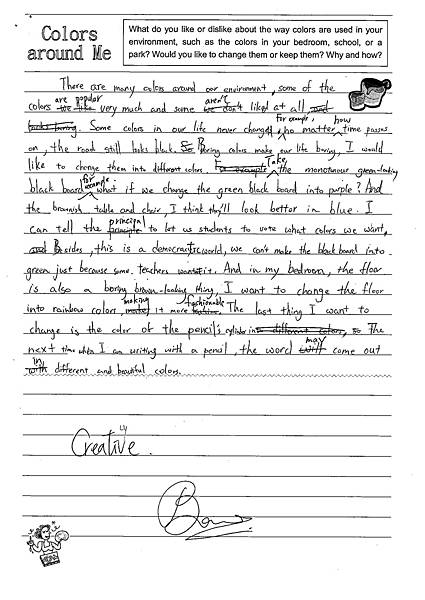 Colors around Me
What do you like or dislike about the way colors are used in your
environment, such as the colors in your bedroom, school, or a
park? Would you like to change them or keep them? Why and how?
There are many colors around our environment, some of the
colors are popular very much and some aren't liked at all
Some colors in our life never changed, for example, no matter how time passes
on, the road still looks black. Boring colors make our life boring, I would
like to change them into different colors. Take the monotonous green-looking
black board for example. What if we change the green black board into purple? And
the brownish table and chair, I think they'll look better in blue. I
can tell the principal to let us students to vote what colors we want,
Besides, this is a democratic world, we can't make the black board into
green just because some teachers want it. And in my bedroom, the floor
is also a boring brown-looking thing, I want to change the floor
into rainbow colors, making it more fashionable. The last thing I want to
change is the color of the pencil's cylinder, so The
next time when I am writing with a pencil, the word may come out
in different and beautiful colors.
Creative.